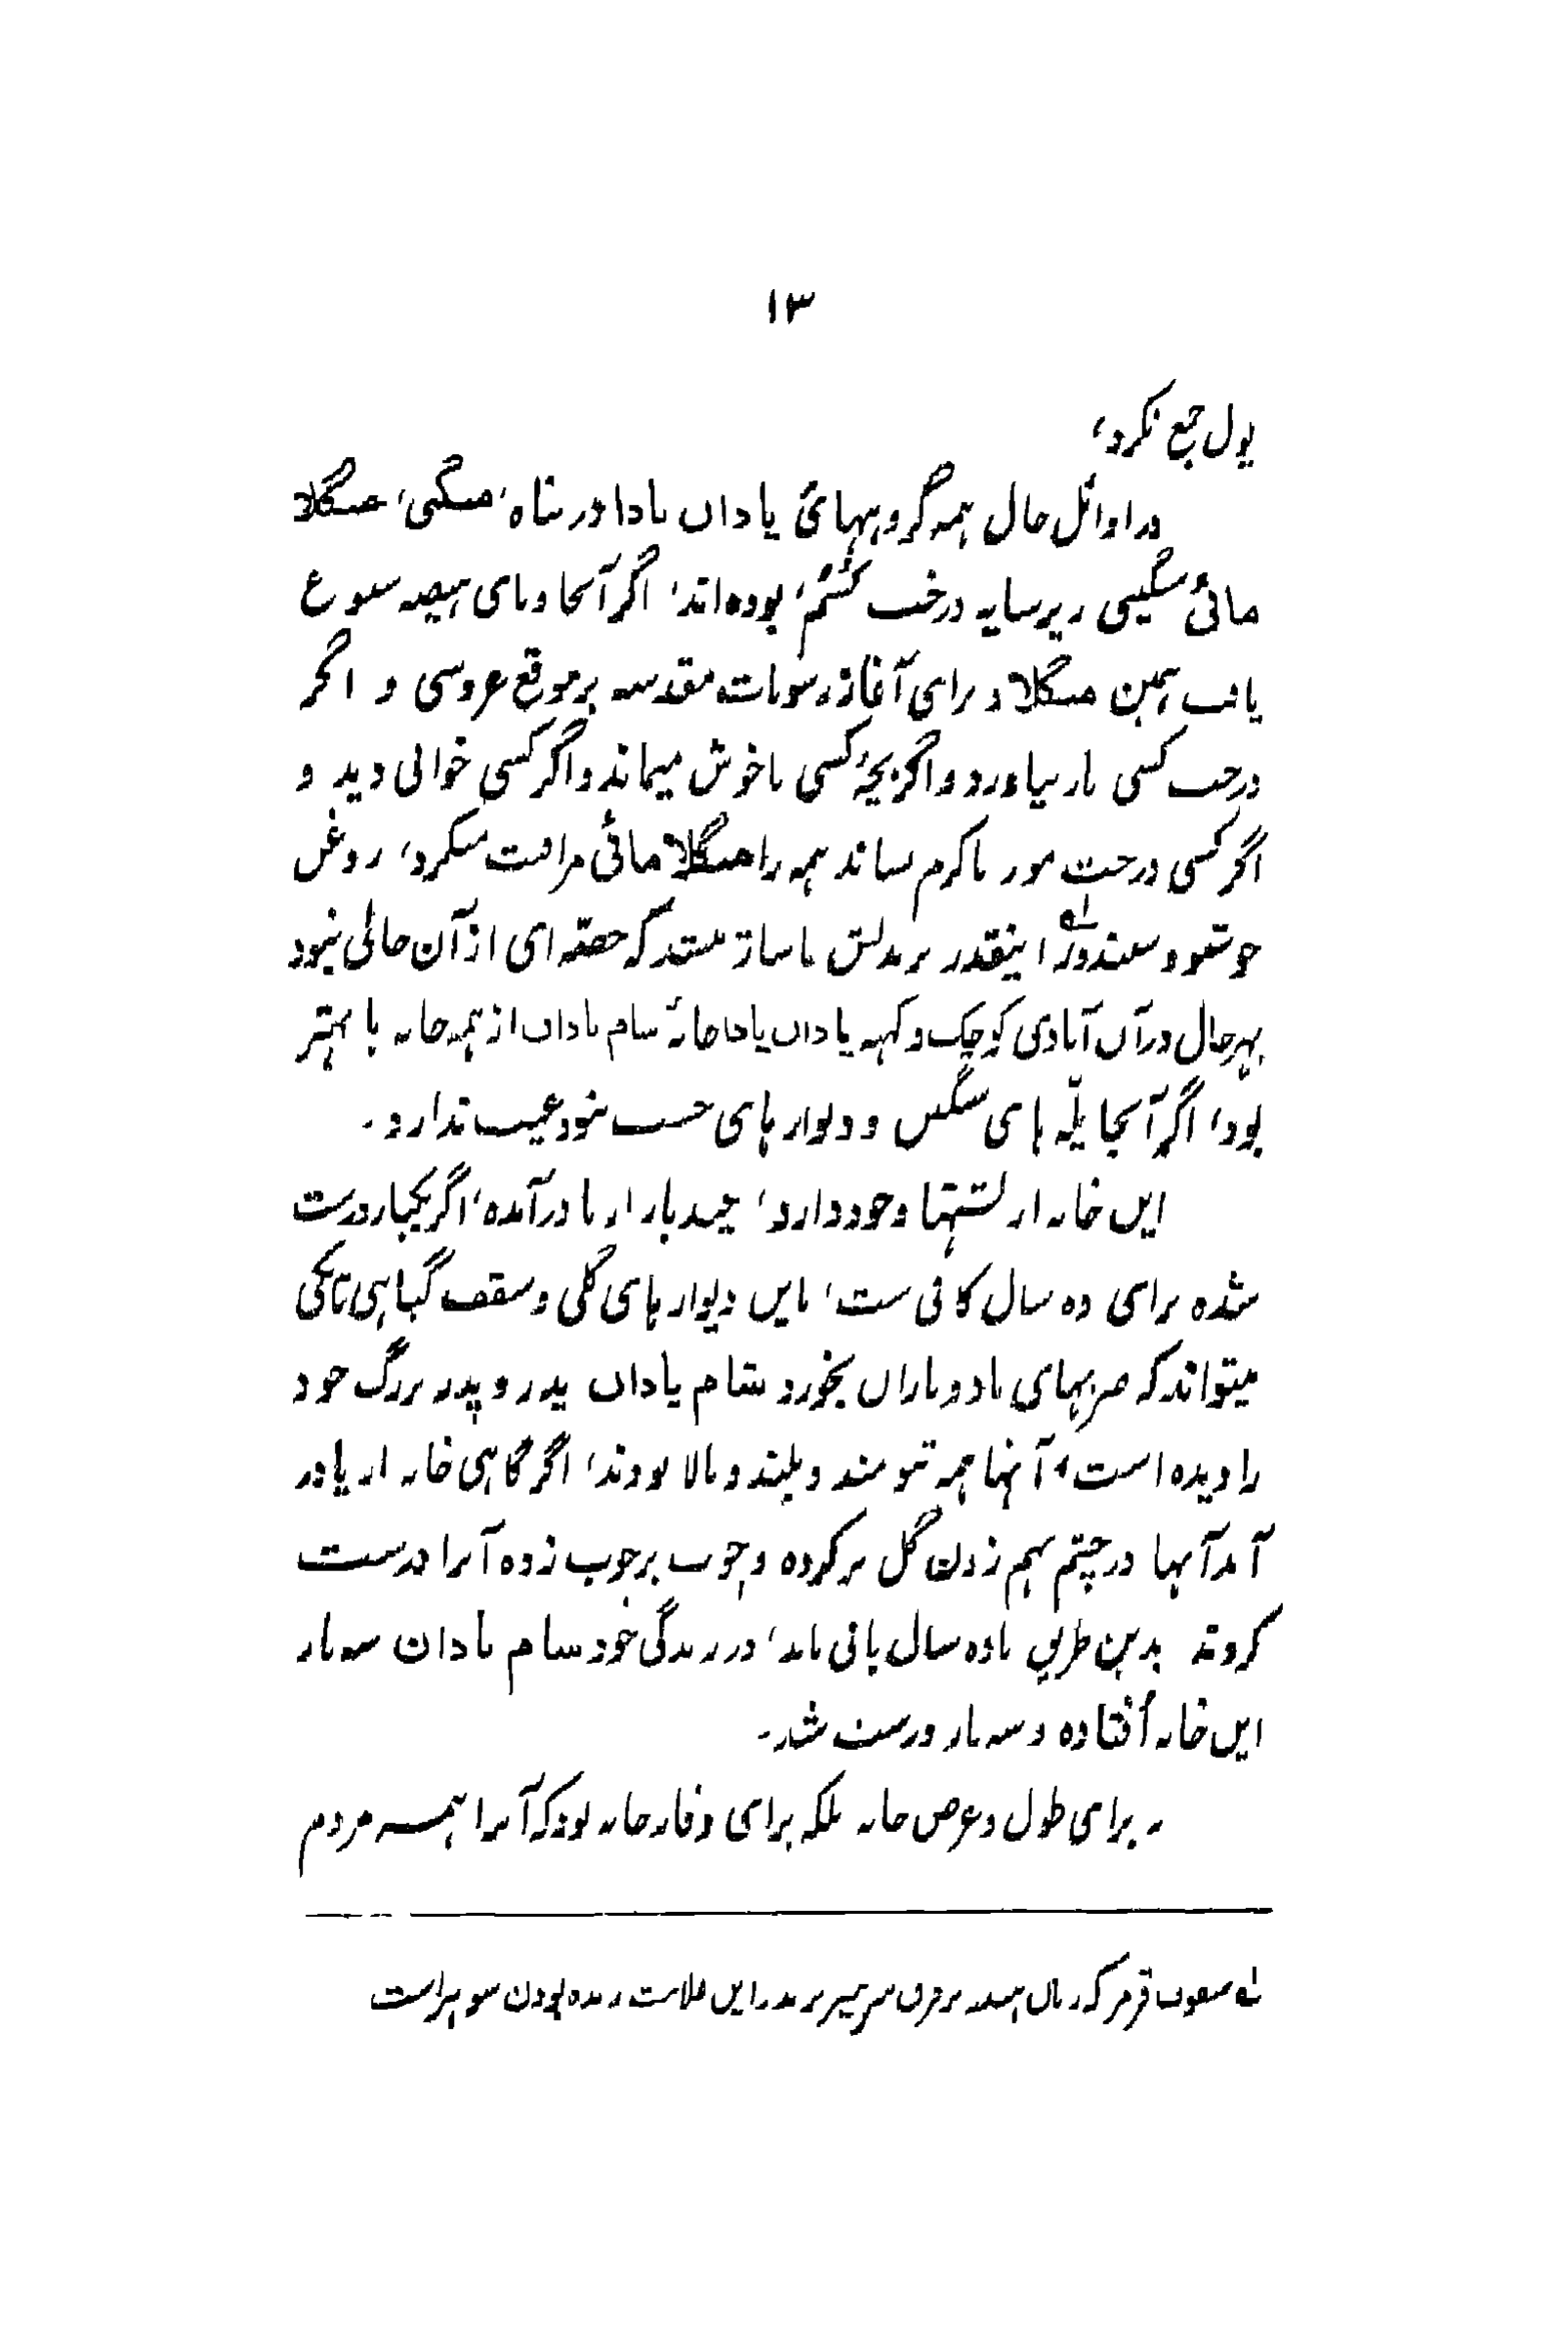 ۱۳
پول جمع نکرد،
در اوائل حال همه گروبیهائ یادان بادا در پناه، منگنی، منگلا
مائی سنگینی زیر سایه درخت کشم، بوده اند، اگر آنجا وبای هیضه شیوع
یافت همین منگلا و برای آغاز رسومات مقدسه بر موقع عروسی و اگر
درخت کسی بار نیاورد و اگر بچهٔ کسی ناخوش میماند و اگر کسی خوابی دید و
اگر کسی درخت مور یا کرم بساند همه را منگلا مائی مراقبت میکرد، روغن
خوشبو و سیندور اینقدر بر بدنش ما ساز هستند که حصّه ای از آن خالی نبود
بهرحال در آن آبادی کوچک و کهنه یادان بادا خانهٔ شام یادان از همه خانه ها بهتر
بود، اگر آنجا پلّه های سنگین و دیوارهای خست نبود عیب ندارد۔
این خانه از پشتها وجود دارد، چند بار از پا درآمده، اگر یکبار درست
شده برای ده سال کافی ست، باین دیوارهای گلی و سقف گیاهی تا کی
میتواند که ضربهای باد و باران بخورد شام یادان پدر و پدر بزرگ خود
را دیده است، آنها همه تنومند و بلند و بالا بودند، اگر گاهی خانه از پا در
آمد آنها در چشم بهم زدن گل بر کرده و چوب بر چوب زده آنرا درست
کردند بدین طریق تا ده سال باقی ماند، در زندگی خود شام یادان سه بار
این خانه اُفتاده و سه بار درست شد۔
نه برای طول و عرض خانه بلکه برای وقار خانه بود که آنرا همه مردم
له سفوف قرمز که زنان هند بر فرق سر میبرند و این علامت زنده بودن شوهر است